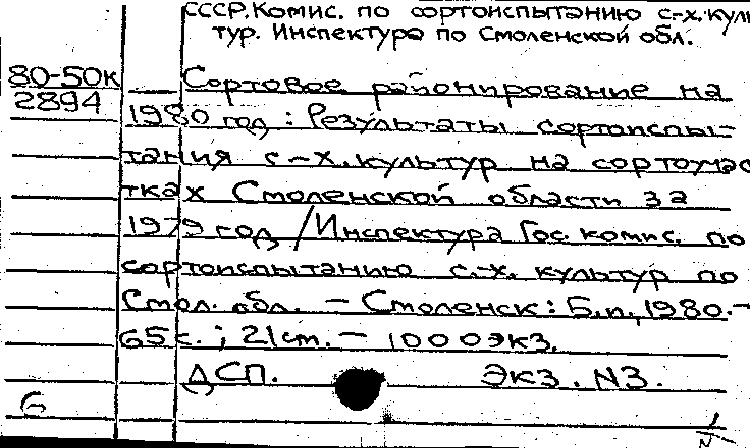 СССР. Комис. по сортоиспытанию с-х. куль
тур. Инспектура по Смоленской обл.
80-50к
2894
Сортовое районирование на
1980 год : Результаты сортоиспы-
тания с-х. культур на сортоучас
тках Смоленской области за
1979 год / Инспектура Гос. комис. по
сортоиспытанию с.-х. культур по
Смол. обл. – Смоленск : Б.и., 1980. –
65 с. ; 21 см. – 1000 экз.
ДСП. Экз. N3.